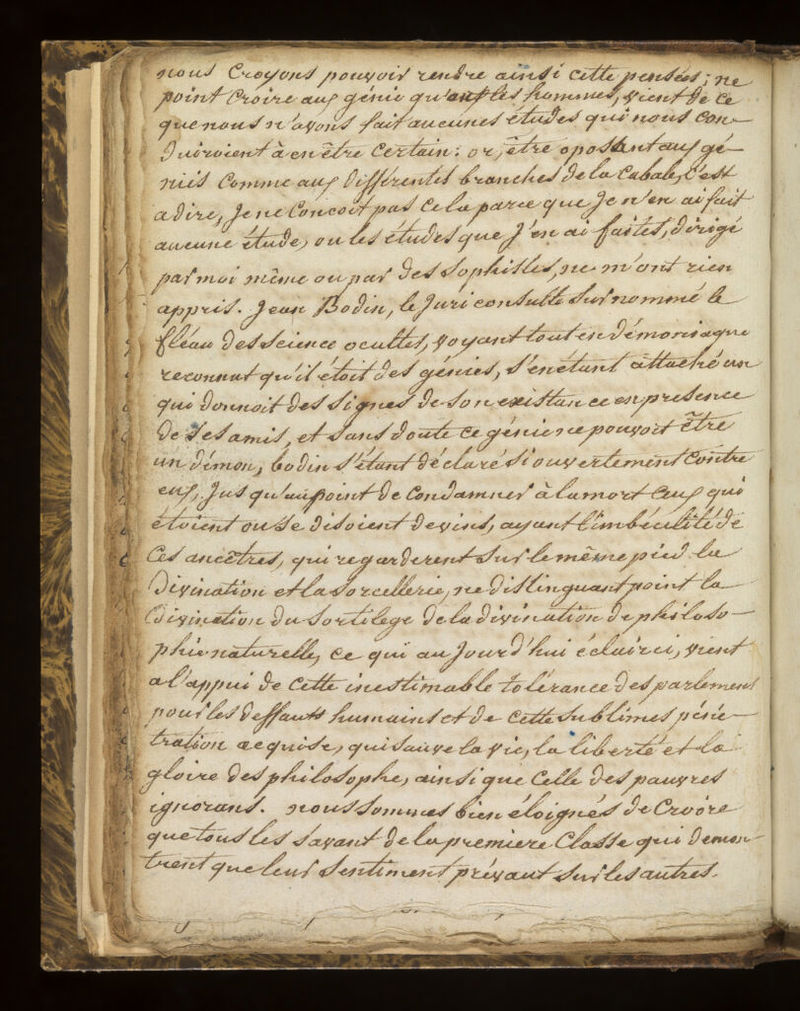 nous Croyons pouvoir rendre ainsi cette pensées; ne
point Croire aux génie qu'ont les hommes, vient de Ce
que nous n'avons fait aucunes études qui nous Con-
duiroient à en être Certain: or, être oposant aux gé-
niés Comme aux différentes branches de la Cabale, C'est
a dire, Je ne Concoit pas Cela parce que Je n'en ai fait
aucune étude, ou les études que J'en ai faites, dirigé
par moi même ou par des Sophistes, ne m'ont rien
appris. Jean Bodin, le Juriconsulte Surnommé le
fléau des Science ocultes, voyant tout en démoniaque
reconnut qu'il étoit des génies, S'en étant attaché un
qui donnoit des Signes de Son existance en presence
de Ses amis, et Sans doute Ce génie ne pouvoit être
un démon, bodin S'étant déclaré Si ouvertement Contre
eux, Jus qu'au point de Condamner à la mort Ceux qui
étoient ou Se disoient devins, ayant l'imbécilité de
Ces ancêtres, qui regarderent Sur le même pied la
Divination et la Sorcellerie, ne distinguant point la
Divination du Sortilege de la divination de philoso-
phie naturelle, Ce qui au Jourd'hui éclairci, vient
a l'appui de Cette inestimable tolérance des parlemens
pour les deffauts humains et de Cette Sublimes péné-
tration acquise, qui Sauve la vie, la liberté et la
gloire des philosophe, ainsi que Celle des pauvres
ignorans. nous Sommes bien éloignés de Croire
que tous les Savant de la premiere Classe qui demon-
trent que leur Sentiment prévaut Sur les autres.